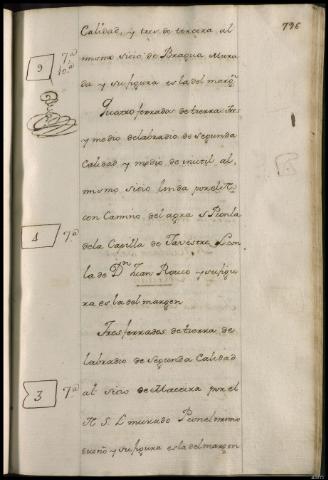 796
Calidad, y tres de tercera al
mismo sitio de Bragua Mura
da y su figura es la del margn
9 7ª 10ª
Quatro ferrados de tierra tres
y medio de labradio de segunda
Calidad y medio de inutil al
mismo sitio linda por el N.
con Camino del agra S. P. con la
de la Capilla de Tavestra L con
4 7ª
la de Dn Juan Rouco y su figu
ra es la del margen
Tres ferrados de tierra de
labradio de segunda Calidad
3 7ª
al sitio de Maceira por el
N S. L murado P con el mismo
dueño y su figura es la del margen